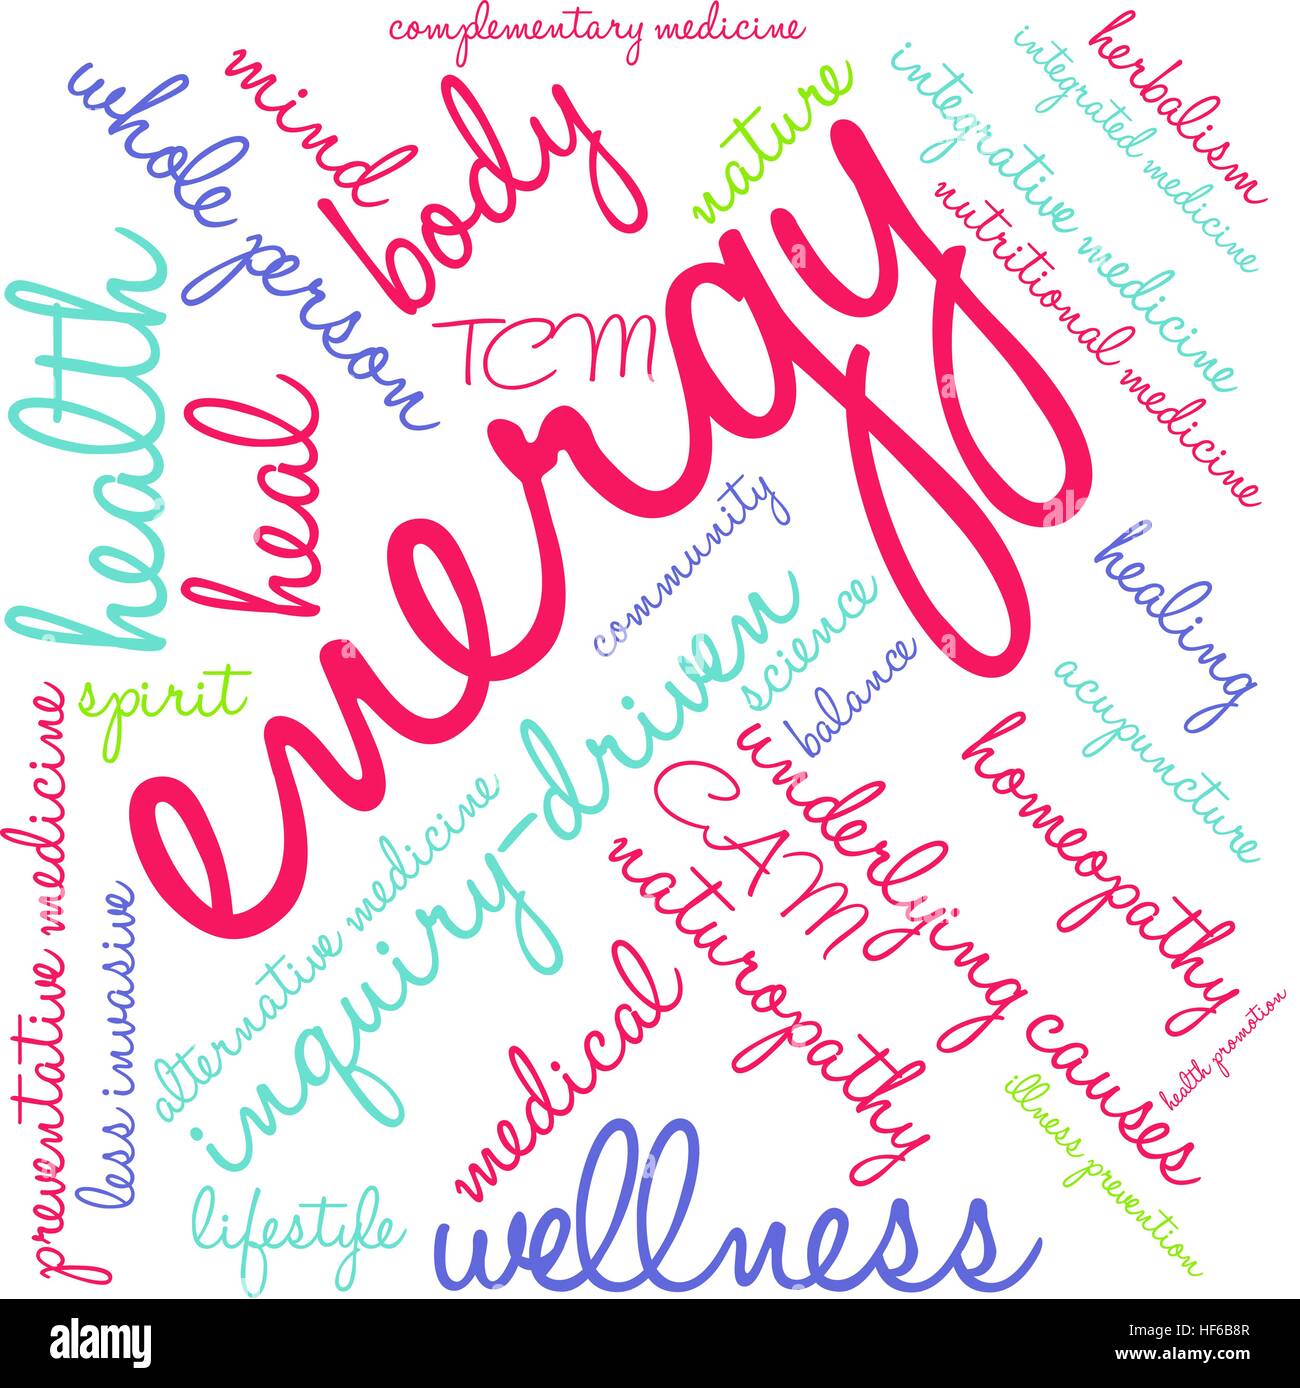 complementary medicine
mind
body
nature
herbalism
integrated medicine
integrative medicine
nutritional medicine
whole person
health
heal
TCM
energy
community
healing
spirit
inquiry-driven
science
balance
acupuncture
preventative medicine
less invasive
alternative medicine
CAM
underlying causes
homeopathy
naturopathy
medical
health promotion
illness prevention
lifestyle
wellness
alamy
alamy
a
a
a
Image ID: HF6B8R
www.alamy.com